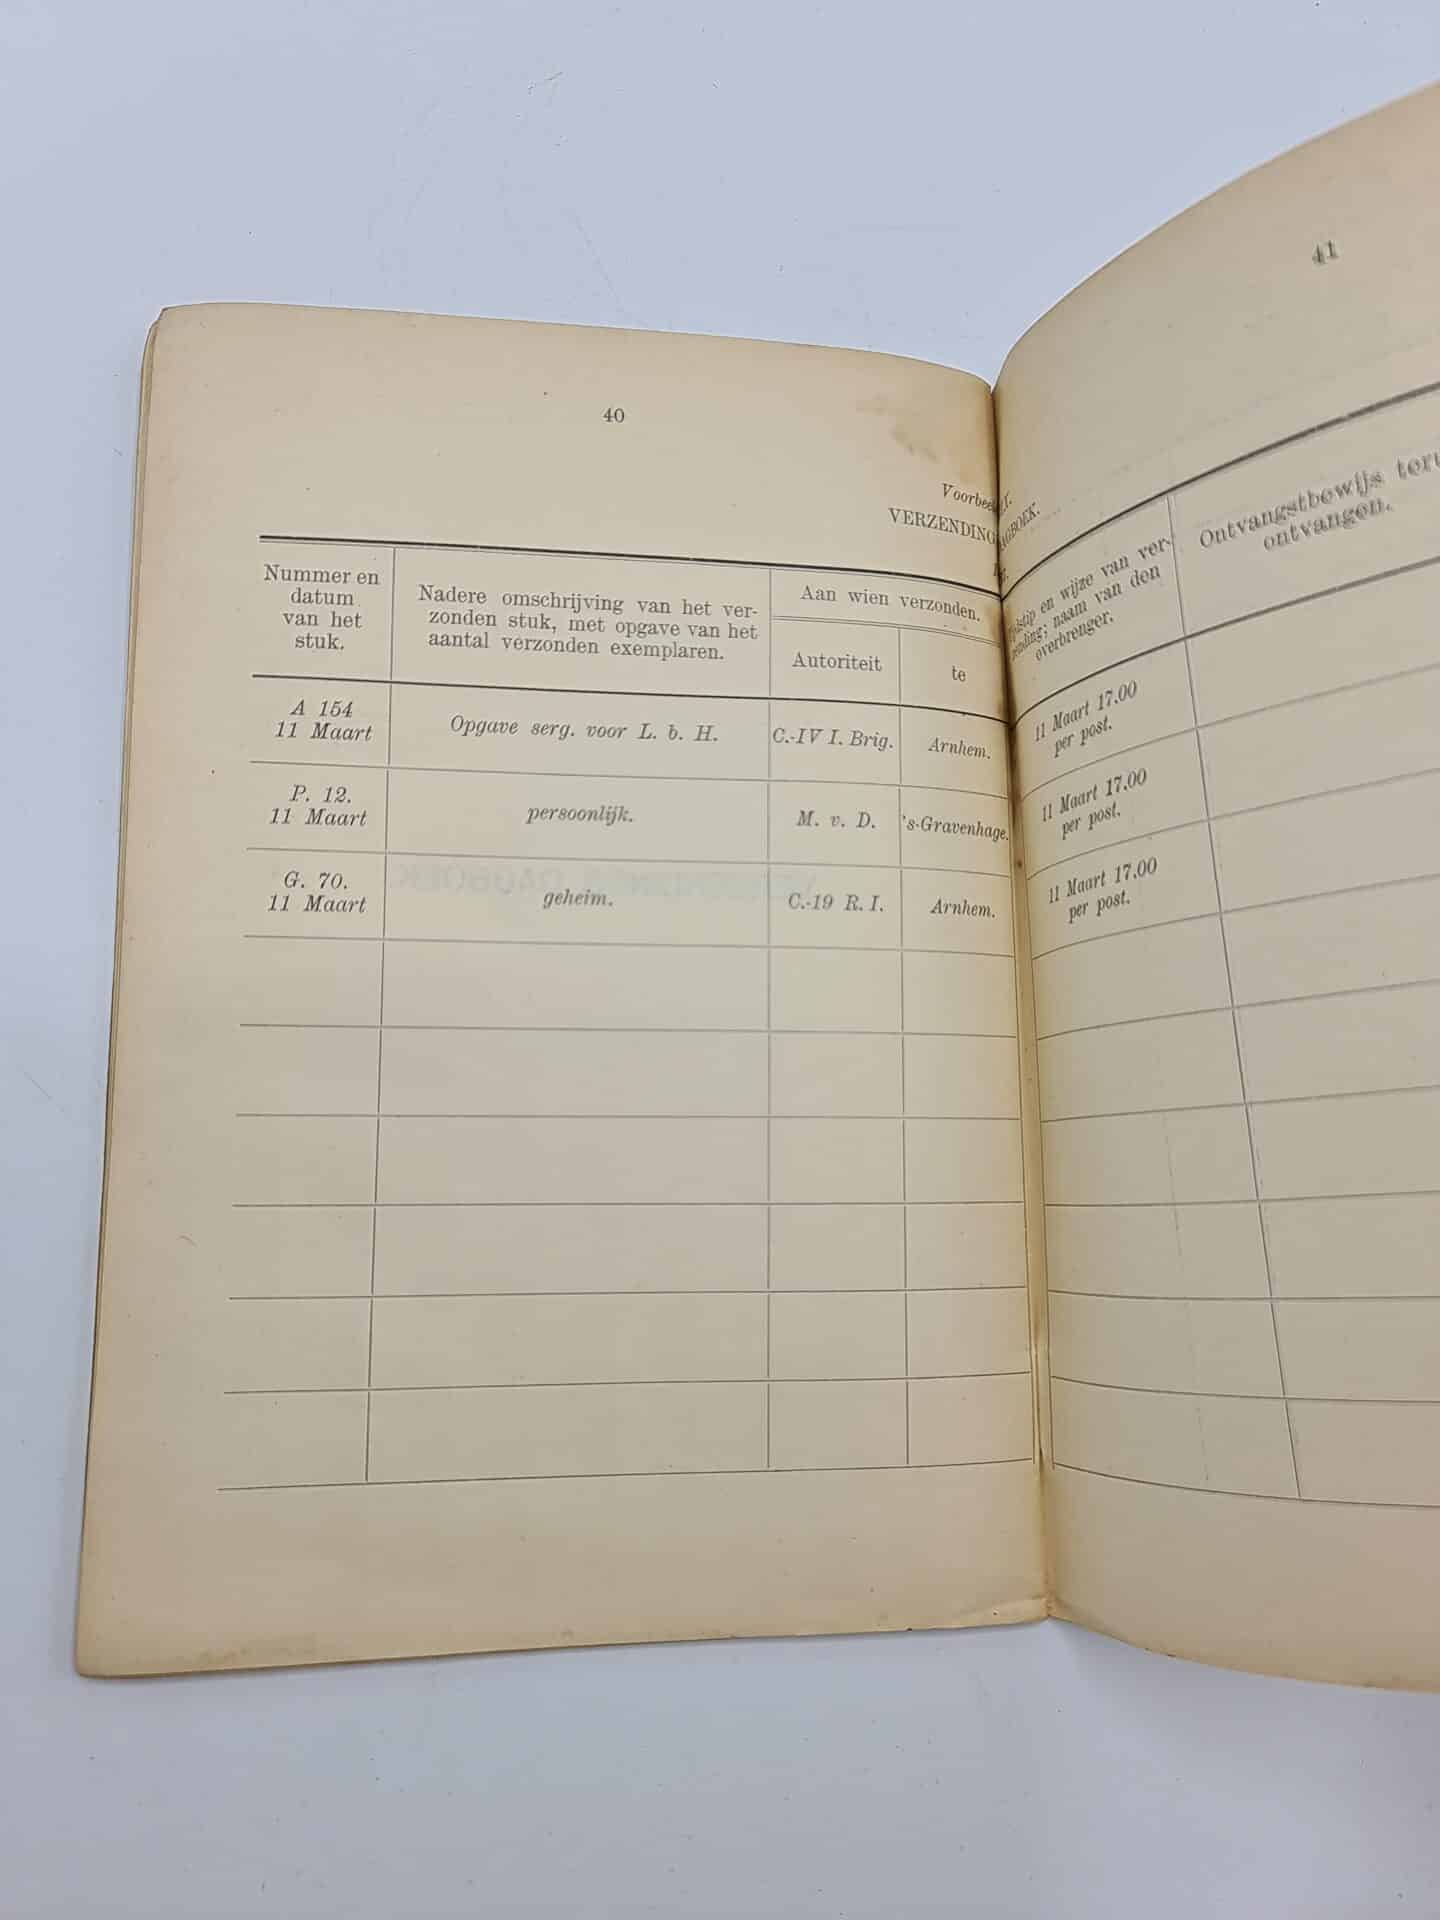 40
VERZENDING
Nummer en
datum
van het
stuk.
Nadere omschrijving van het ver-
zonden stuk, met opgave van het
aantal verzonden exemplaren.
Aan wien verzonden.
Autoriteit
te
A 154
11 Maart
Opgave serg. voor L. b. H.
C.-IV I. Brig.
Arnhem.
P. 12.
11 Maart
persoonlijk.
M. v. D.
's-Gravenhage.
G. 70.
11 Maart
geheim.
C.-19 R. I.
Arnhem.
41
AGBOEK.
en wijze van ver-
zending; naam van den
overbrenger.
Ontvangstbewijs
ontvangen.
11 Maart 17.00
per post.
11 Maart 17.00
per post.
11 Maart 17.00
per post.